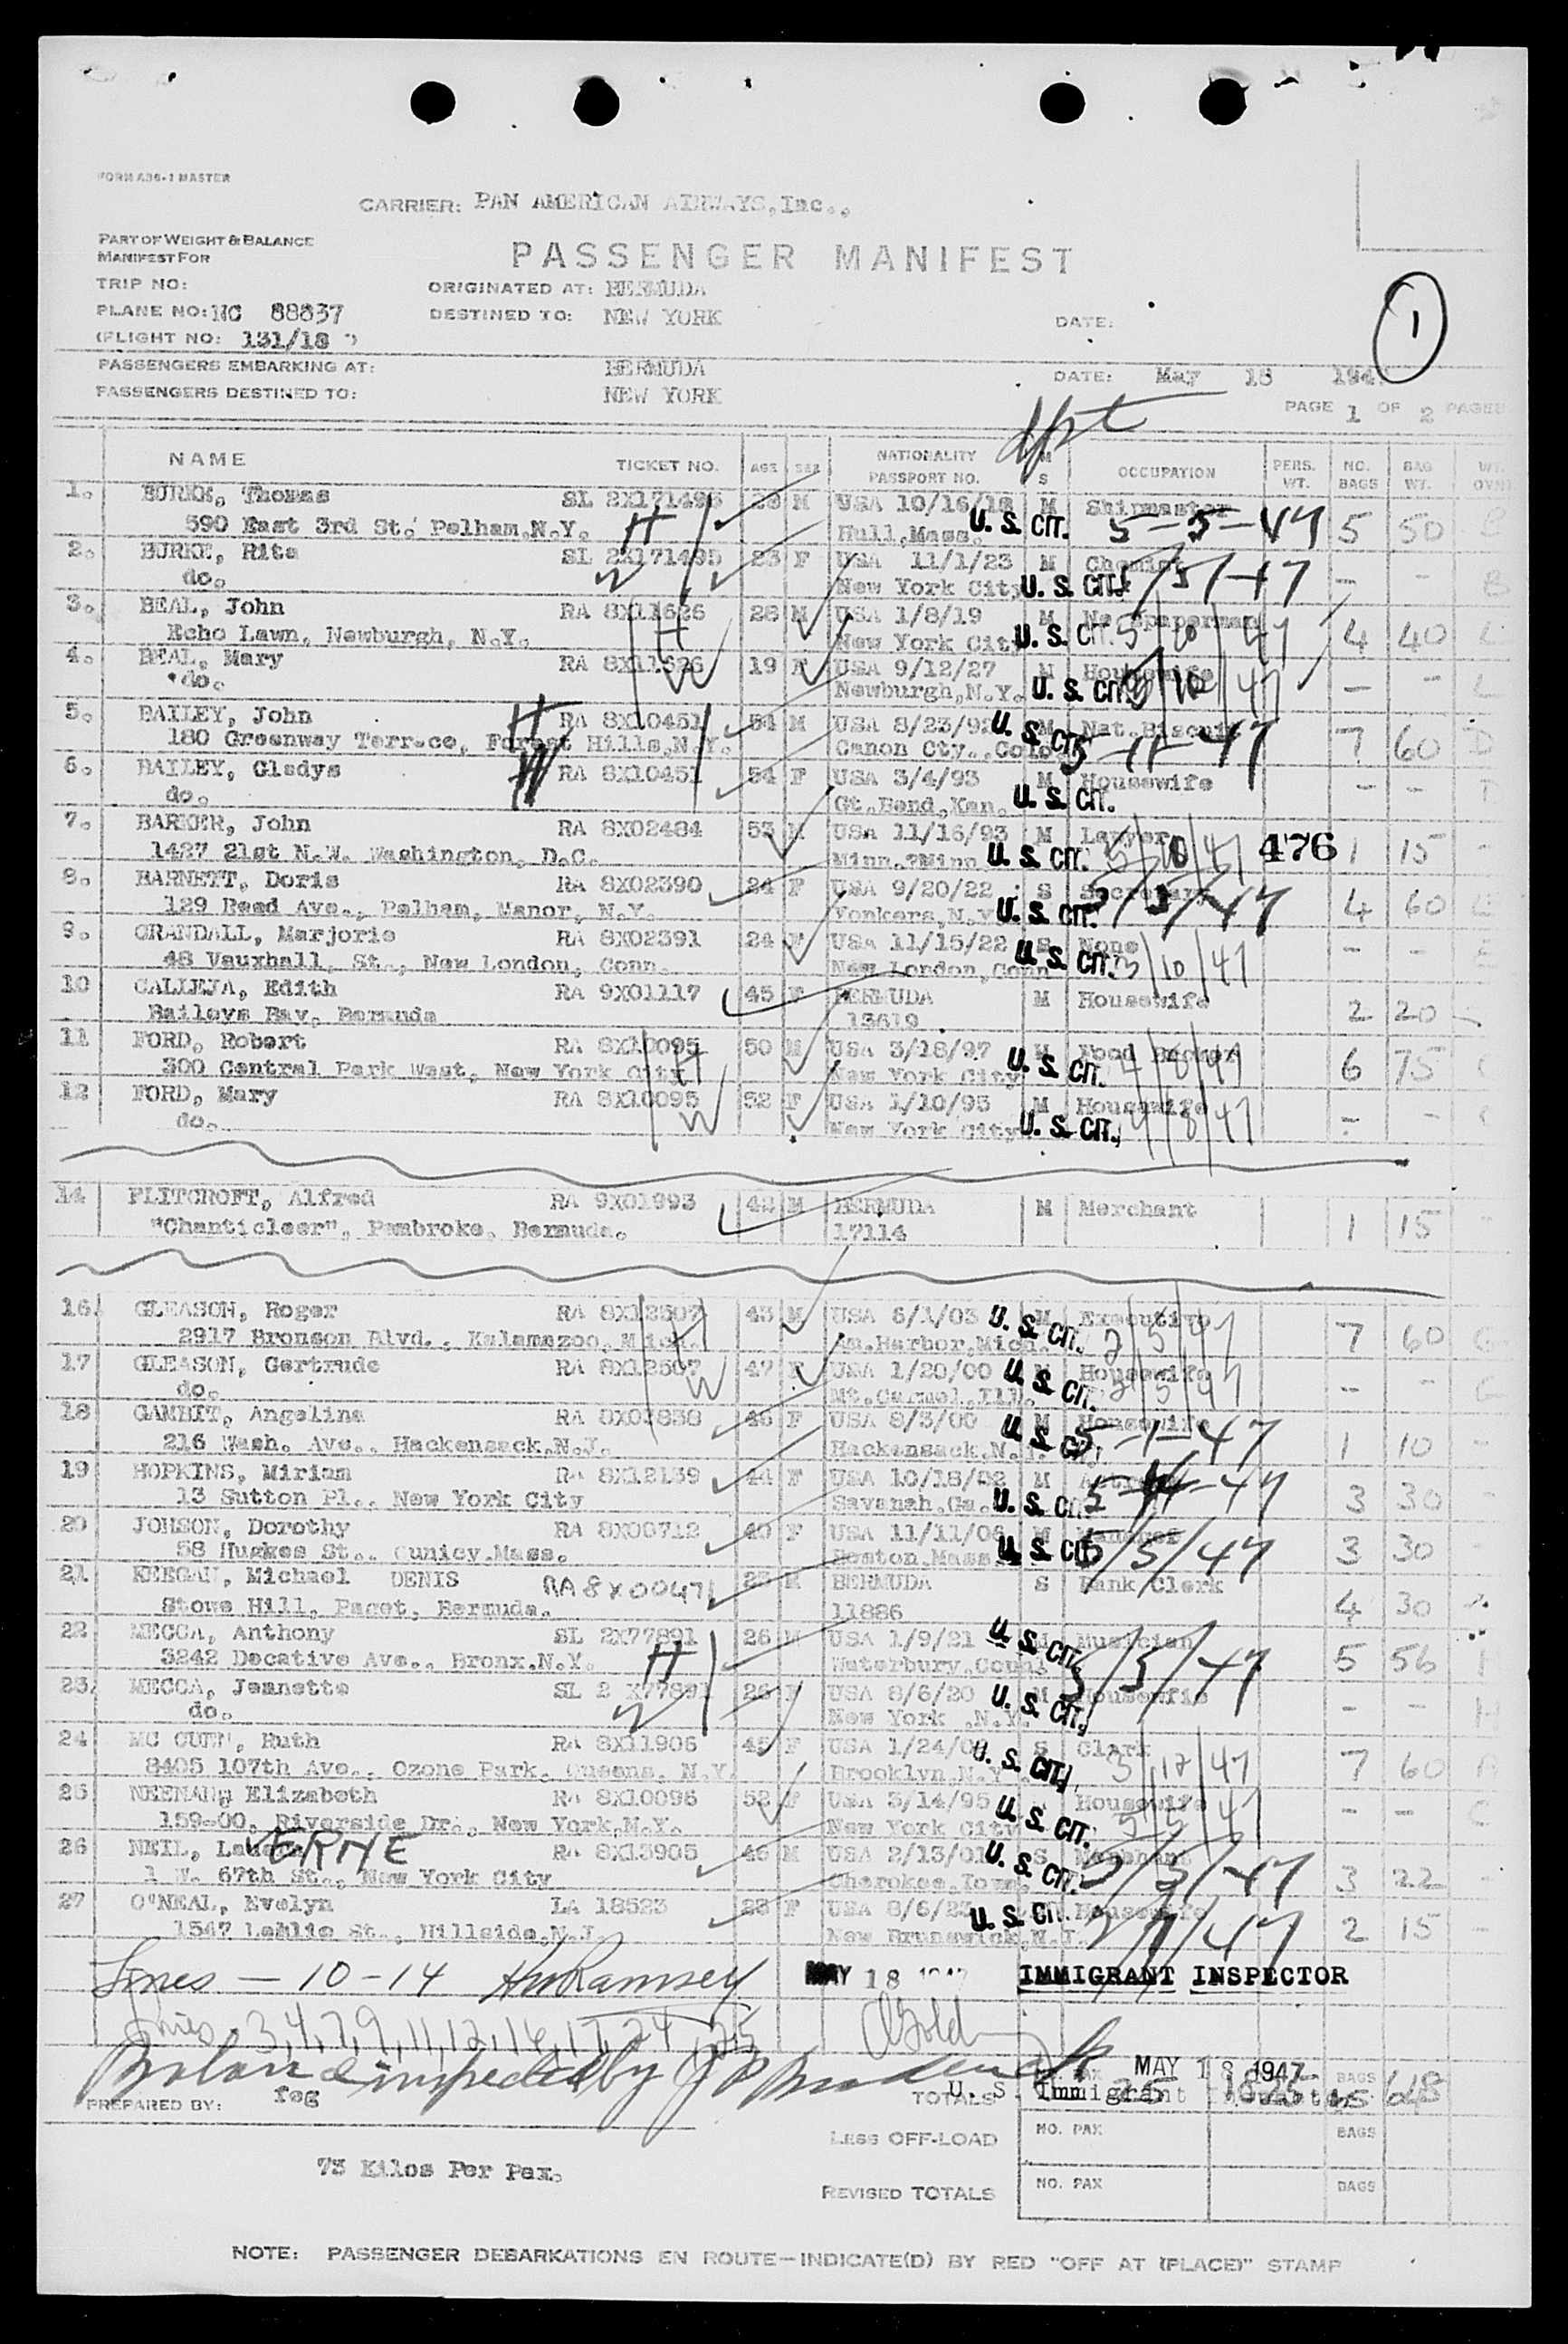 FORM A36-1 MASTER
CARRIER: PAN AMERICAN AIRWAYS, Inc.,
PART OF WEIGHT & BALANCE
MANIFEST FOR
PASSENGER MANIFEST
TRIP NO:
ORIGINATED AT: BERMUDA
PLANE NO: NC 88837
DESTINED TO: NEW YORK
DATE:
1
(FLIGHT NO: 131/18 )
PASSENGERS EMBARKING AT: BERMUDA
DATE: May 18 194
PASSENGERS DESTINED TO: NEW YORK
PAGE 1 OF 2 PAGES
NAME TICKET NO. AGE SEX NATIONALITY PASSPORT NO. M S OCCUPATION PERS. WT. NO. BAGS BAG WT. WT.
1. BURKE, Thomas SL 2X171496 28 M USA 10/16/18 M Shipmaster
590 East 3rd St. Pelham,N.Y. H Hull,Mass. U. S. CIT. 5-5-47 5 50
2. BURKE, Rita SL 2X171495 23 F USA 11/1/23 M Chemist
do. W New York City U. S. CIT. 5/47 - -
3. BEAL, John RA 8X11626 28 M USA 1/8/19 M Newspaperman
Echo Lawn, Newburgh, N.Y. H New York City U. S. CIT. 5/10/47 4 40
4. BEAL, Mary RA 8X11626 19 F USA 9/12/27 M Housewife
do. W Newburgh,N.Y. U. S. CIT. 5/10/47 - -
5. BAILEY, John H RA 8X10451 54 M USA 8/23/92 M Nat.Biscuit
180 Greenway Terrace, Forest Hills,N.Y. Canon Cty.,Colo. U. S. CIT. 5-11-47 7 60 D
6. BAILEY, Gladys W RA 8X10451 54 F USA 3/4/93 M Housewife
do. Gt.Bend,Kan. U. S. CIT. - - D
7. BARKER, John RA 8X02484 53 M USA 11/16/93 M Lawyer
1427 21st N.W. Washington, D.C. Minn.,Minn U. S. CIT. 5/10/47 476 1 15 -
8. BARNETT, Doris RA 8X02390 24 F USA 9/20/22 S Secretary
129 Reed Ave., Pelham, Manor, N.Y. Yonkers,N.Y. U. S. CIT. 5/5/47 4 60
9. CRANDALL, Marjorie RA 8X02391 24 F USA 11/15/22 S None
48 Vauxhall, St., New London, Conn. New London,Conn U. S. CIT. 5/10/47 - -
10 CALLEJA, Edith RA 9X01117 45 F BERMUDA M Housewife
Baileys Bay, Bermuda 13619 2 20 -
11 FORD, Robert RA 8X10095 50 M USA 3/18/97 M Food Broker
300 Central Park West, New York City H New York City U. S. CIT. 4/8/47 6 75
12 FORD, Mary RA 8X10095 52 F USA 1/10/95 M Housewife
do. W New York City U. S. CIT. 4/8/47 - -
14 FLITCROFT, Alfred RA 9X01993 42 M BERMUDA M Merchant
"Chanticleer", Pembroke, Bermuda. 17114 1 15 -
16 GLEASON, Roger RA 8X12507 43 M USA 6/1/03 M Executive
2917 Bronson Blvd., Kalamazoo, Mich. H Harbor,Mich. U. S. CIT. 2/5/47 7 60 G
17 GLEASON, Gertrude RA 8X12507 47 F USA 1/29/00 M Housewife
do. W Mt.Carmel,Ill. U. S. CIT. 2/5/47 - - G
18 GAMBIT, Angelina RA 8X02838 46 F USA 8/3/00 M Housewife
216 Wash. Ave., Hackensack,N.J. Hackensack,N.J. U. S. CIT. 5-1-47 1 10 -
19 HOPKINS, Miriam RA 8X12139 44 F USA 10/18/02 M
13 Sutton Pl., New York City Savanah,Ga. U. S. CIT. 47 3 30 -
20 JOHSON, Dorothy RA 8X00712 40 F USA 11/11/06 M Manager
58 Hughes St., Qunicy,Mass. Boston,Mass. U. S. CIT. 5/5/47 3 30 -
21 KEEGAN, Michael DENIS RA 8X00471 23 M BERMUDA S Bank Clerk
Stowe Hill, Paget, Bermuda. 11886 4 30
22 MECCA, Anthony SL 2X77891 26 M USA 1/9/21 M Musician
3242 Decative Ave., Bronx,N.Y. H Waterbury,Conn. U. S. CIT. 5/5/47 5 56
23 MECCA, Jeanette SL 2 X77891 26 F USA 8/6/20 M Housewfie
do. W New York ,N.Y. U. S. CIT. - - H
24 MC CUEN, Ruth RA 8X11906 45 F USA 1/24/0 S Clerk
8405 107th Ave., Ozone Park, Queens, N.Y. Brooklyn,N.Y. U. S. CIT. 3/12/47 7 60
25 NEENAN, Elizabeth RA 8X10096 52 F USA 3/14/95 Housewife
159-00, Riverside Dr., New York,N.Y. New York City U. S. CIT. 5/5/47 - - C
26 NEIL, La VERNE RA 8X13905 46 M USA 2/13/01 S Merchant
1 W. 67th St., New York City Cherokee,Iowa U. S. CIT. 5/47 3 22 -
27 O'NEAL, Evelyn LA 18523 23 F USA 8/6/23 Housewife
1547 Leslie St., Hillside,N.J. New Brunswick,N.J. U. S. CIT. 47 2 15 -
Lines — 10-14 HW Ramsey MAY 18 1947 IMMIGRANT INSPECTOR
Lines 3,4,7,9,11,12,16,17,24,25
Balance inspected by
MAY 18 1947
U. S. Immigrant Inspector
PREPARED BY: feg
TOTALS NO. PAX 25 BAGS
LESS OFF-LOAD NO. PAX BAGS
73 Kilos Per Pax.
REVISED TOTALS NO. PAX BAGS
NOTE: PASSENGER DEBARKATIONS EN ROUTE—INDICATE(D) BY RED "OFF AT (PLACE)" STAMP